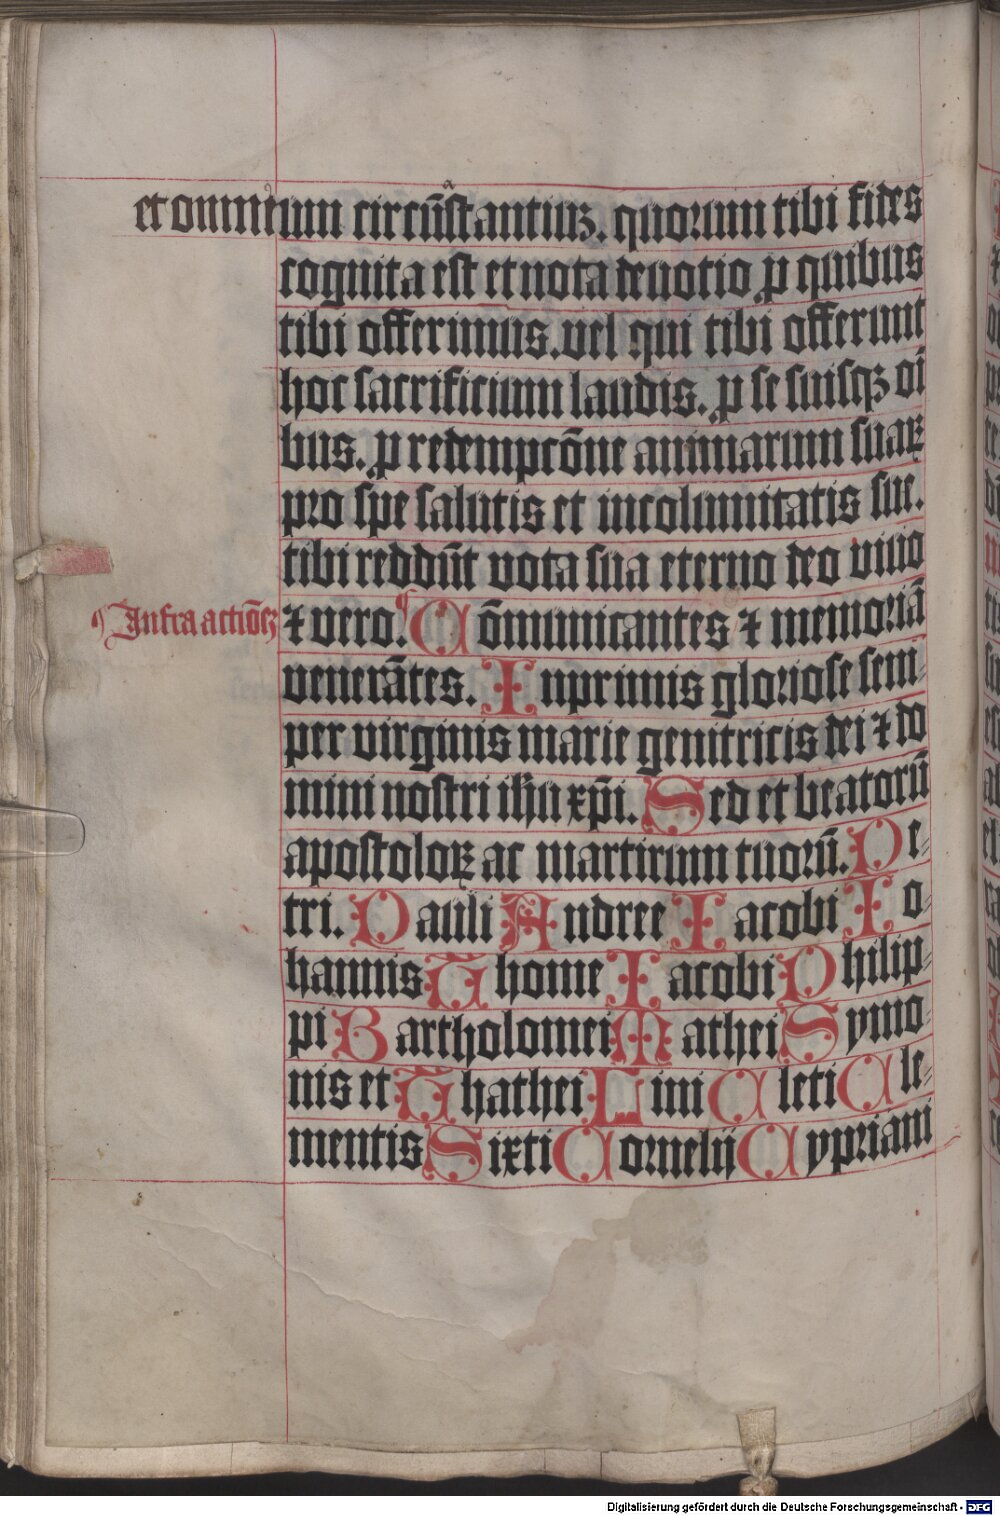 et omnium circūstantiuꝫ. quorum tibi fides
cognita est et nota deuotio ꝓ quibus
tibi offerimus. vel qui tibi offerunt
hoc sacrificium laudis. ꝓ se suisqꝫ oī
bus. ꝓ redempcōne animarum suaꝝ
pro spe salutis et incolumitatis sue.
tibi reddūt vota sua eterno deo viuo
Infra actiōeꝫ
⁊ vero. Cōmunicantes ⁊ memoriā
venerātes. Inprimis gloriose sem-
per virginis marie genitricis dei ⁊ do
mini nostri ihu xp̄i. Sed et beatorū
apostoloꝝ ac martirum tuorū. Pe-
tri. Pauli Andree Iacobi Io-
hannis Thome Iacobi Philip-
pi Bartholomei Mathei Symo-
nis et Thathei Lini Cleti Cle-
mentis Sixti Cornelij Cypriani
Digitalisierung gefördert durch die Deutsche Forschungsgemeinschaft - DFG